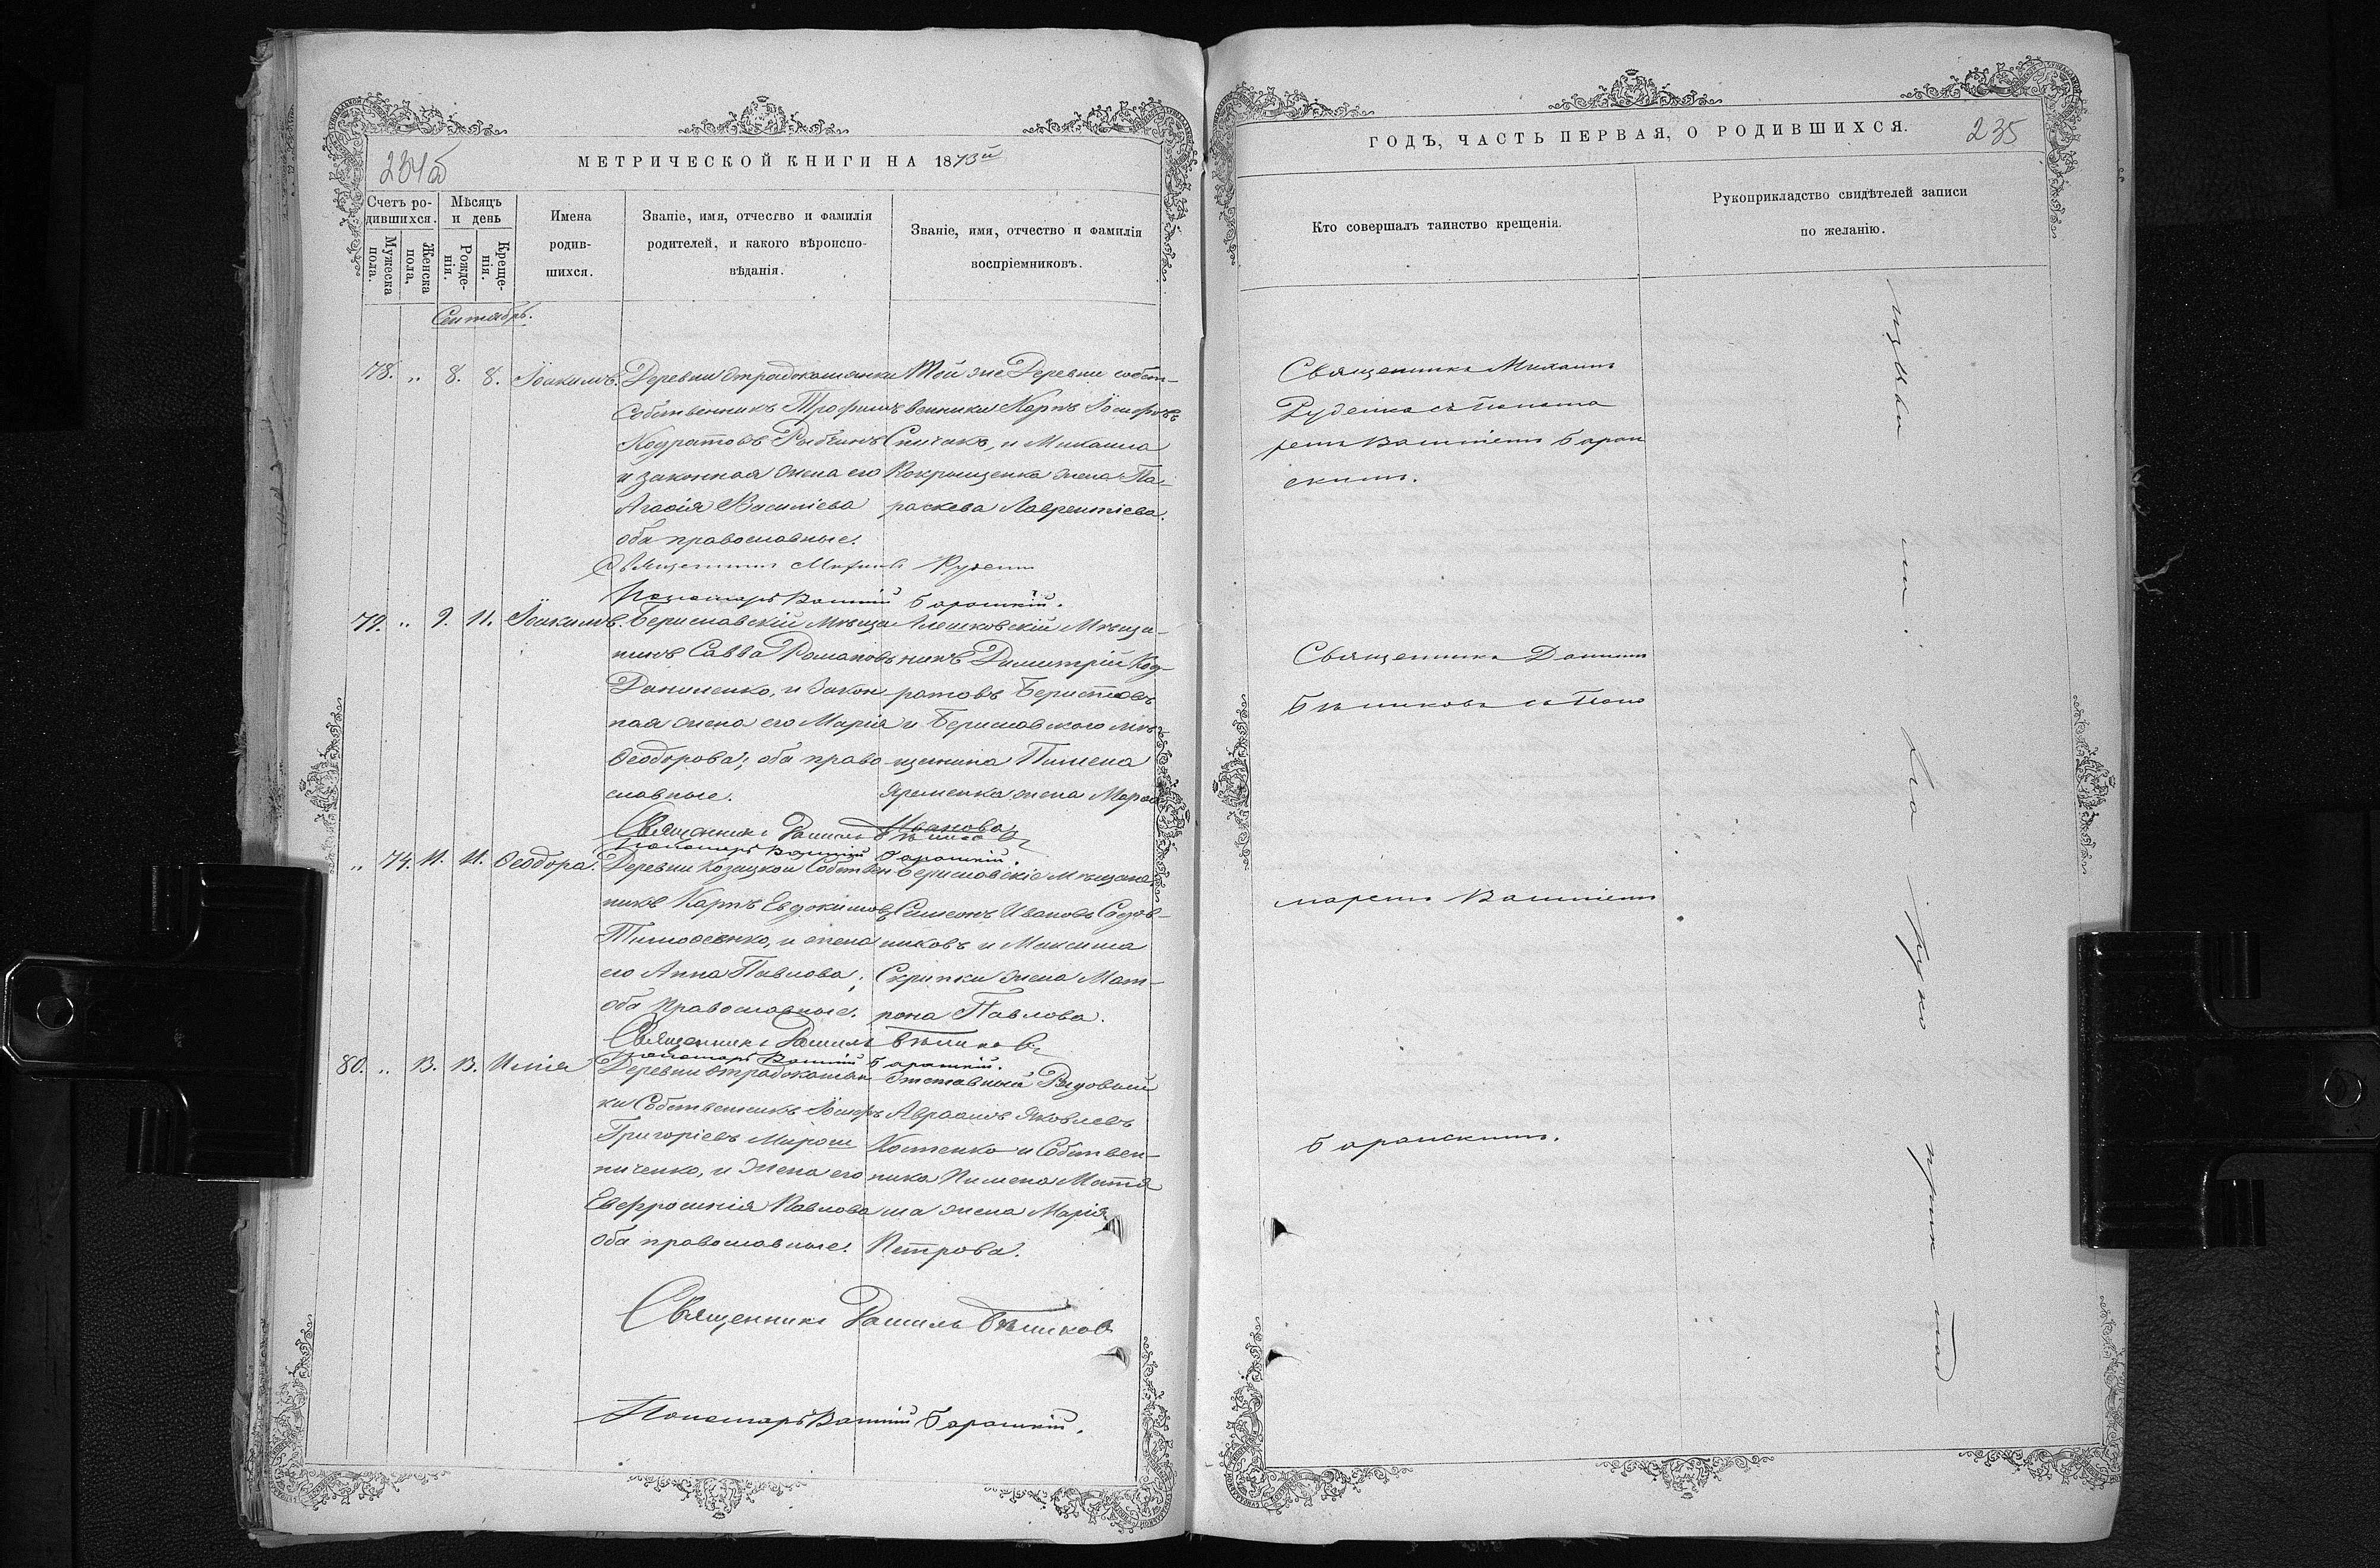 234б
МЕТРИЧЕСКОЙ КНИГИ НА 1873й
Счетъ ро-
дившихся.
Мужеска
пола.
Женска
пола.
Мѣсяцъ
и день
Рожде-
нія.
Креще-
нія.
Имена
родив-
шихся.
Званіе, имя, отчество и фамилія
родителей, и какого вѣроиспо-
вѣданія.
Званіе, имя, отчество и фамилія
воспріемниковъ.
Сентябрь.
78. „ 8. 8. Іоакимъ.
Деревни Отрадокаменки
Собственникъ Трофимъ
Кодратовъ
и законная жена его
Агафія Василіева
оба православные.
Той же Деревни собст-
венники Карпъ Іосифовъ
Спичакъ, и Михаила
жена Па-
раскева Лаврентіева.
Священникъ Михаилъ Руденко
Пономарь Василій Боранскій.
79. „ 9. 11. Іоакимъ.
Бериславскій Мѣща
нинъ Савва Романовъ
Даниленко, и Закон
ная жена его Марія
Феодорова; оба право
славные.
Алешковскій Мѣща-
нинъ Димитрій Код-
ратовъ
и Бериславского мѣ-
щанина Пимена
Яременка жена Марѳа
Иванова
Священникъ Даніилъ Бѣликовъ
Пономарь Василій Боранскій.
„ 74. 11. 11. Феодора.
Деревни Козацкой Собствен
никъ Карпъ Евдокимовъ
Тимофеенко, и жена
его Анна Павлова;
оба Православные.
Бериславскіе Мѣщане
Симеонъ Ивановъ Садов-
никовъ и Максима
Скрипки жена Мат-
рона Павлова.
Священникъ Даніилъ Бѣликовъ
Пономарь Василій Боранскій.
80. „ 13. 13. Илія
Деревни Отрадокамен
ки Собственникъ Іосифъ
Григоріевъ Мирош
ниченко, и Жена его
Евфросинія Павлова
Оба православные.
Отставный Рядовый
Авраамъ Яковлевъ
Костенко и Собствен-
ника Пимена Матя
ша жена Марія
Петрова.
Священникъ Даніилъ Бѣликовъ
Пономарь Василій Боранскій.
ГОДЪ, ЧАСТЬ ПЕРВАЯ, О РОДИВШИХСЯ. 235
Кто совершалъ таинство крещенія.
Рукоприкладство свидѣтелей записи
по желанію.
Священникъ Михаилъ
Руденко съ Понома
ремъ Василіемъ Боран
скимъ.
Священникъ Даніилъ
Бѣликовъ съ Поно
маремъ Василіемъ
Боранскимъ.